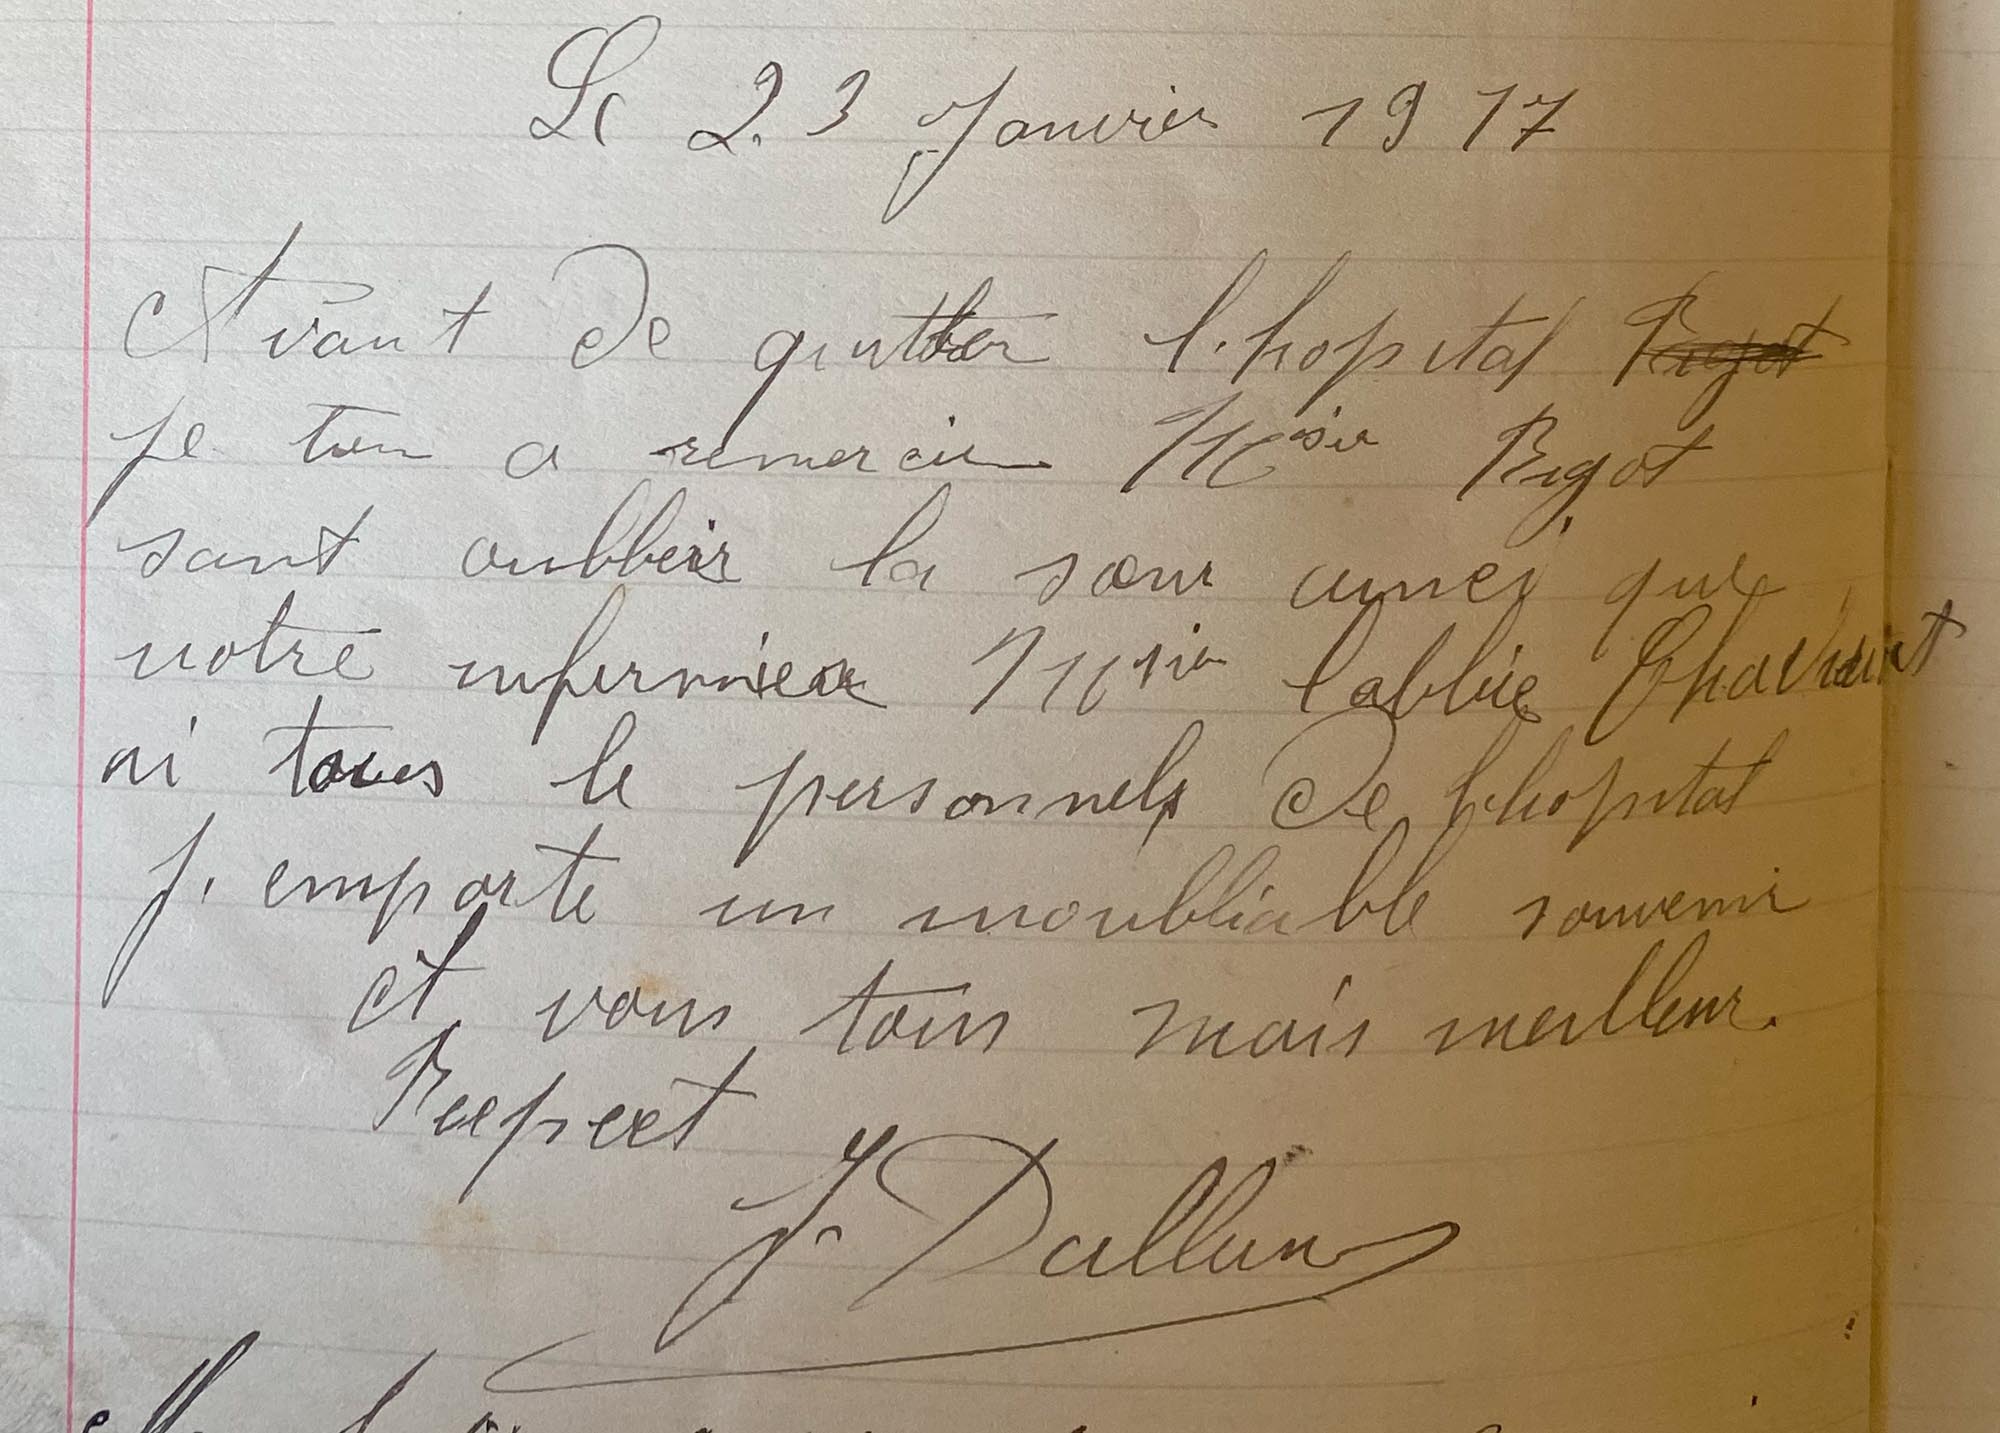 Le 23 Janvier 1917
Avant de quitter l'hopital Rigot
je tien a remercier Msier Rigot
sant oublier la sœur aincï que
notre infermier Msier labbie
ni tous le personnels de l.hopital
j. emporte un inoubliable souvenir
et vous tous mais meilleur.
Respect
J. Dallun